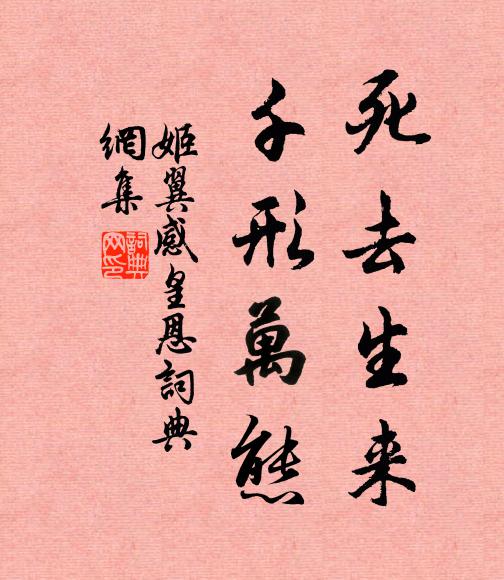 死去生来
千形萬態
姬翼感皇恩詞典
網集
詞典
网印